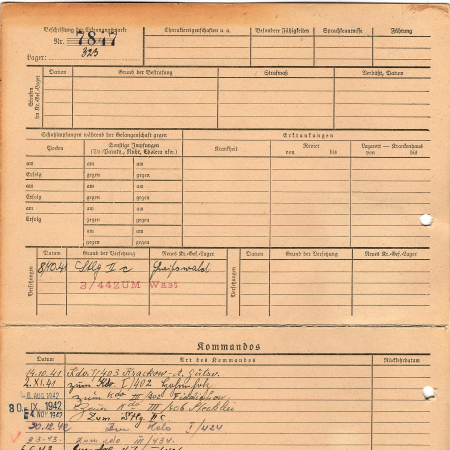 Beschriftung der Erkennungsmarke
Nr. 7847
Lager: 323
Charaktereigenschaften u. a.
Besondere Fähigkeiten
Sprachkenntnisse
Führung
Strafen im Kr.-Gef.-Lager
Datum
Grund der Bestrafung
Strafmaß
Verbüßt, Datum
Schutzimpfungen während der Gefangenschaft gegen
Erkrankungen
Pocken
Sonstige Impfungen
(Ty.-Paraty., Ruhr, Cholera usw.)
Krankheit
Revier
von bis
Lazarett — Krankenhaus
von bis
am am am
Erfolg gegen gegen
am am am
Erfolg gegen gegen
am am am
Erfolg gegen gegen
am am am
Erfolg gegen gegen
am am
gegen gegen
Versetzungen
Datum
Grund der Versetzung
Neues Kr.-Gef.-Lager
Versetzungen
Datum
Grund der Versetzung
Neues Kr.-Gef.-Lager
8.10.41 Stlg II c Greifswald
3/44 ZUM Wast
Kommandos
Datum
Art des Kommandos
Rückkehrdatum
14.10.41 Kdo. I/403 Krackow-A. Gustav.
2.XI.41 zum Kdo I/402
AUG 1942 zum Kdo III/402
30. IX 1942 Zum Kdo III/806
4 NOV 1942 Zum Stlg II c
30.12.42 Kdo I/424
9.3.43. zum Kdo III/434.